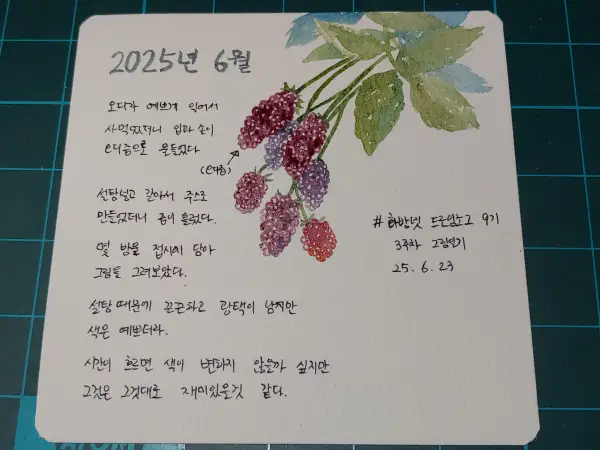 2025년 6월
오디가 예쁘게 익어서
사먹었더니 입과 손이
오디즙으로 물들었다
설탕넣고 갈아서 주스로
만들었더니 흘렀다.
몇 방울 접시에 담아
그림을 그려보았다.
설탕때문에 끈끈하고 광택이 남지만
색은 예쁘더라.
시간이 흐르면 색이 변하지 않을까 싶지만
그것은 그것대로 재미있을것 같다.
# 9기
3주차 그림일기
25. 6. 23